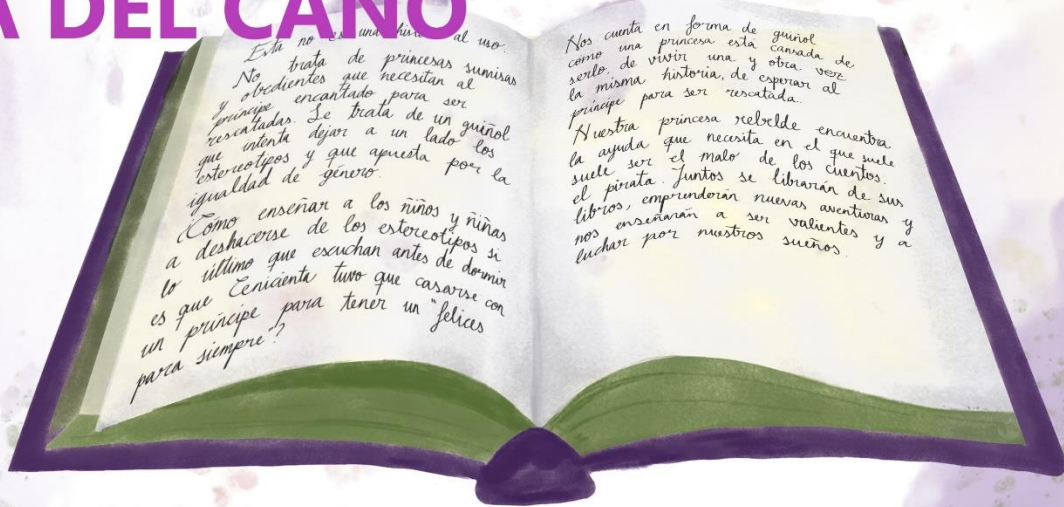 A DEL CANO
Esta no es una historia al uso.
No trata de princesas sumisas
y obedientes que necesitan al
príncipe encantado para ser
rescatadas. Se trata de un guiñol
que intenta dejar a un lado los
estereotipos y que apuesta por la
igualdad de género.
¿Cómo enseñar a los niños y niñas
a deshacerse de los estereotipos si
lo último que escuchan antes de dormir
es que Cenicienta tuvo que casarse con
un príncipe para tener un "felices
para siempre"?
Nos cuenta en forma de guiñol
como una princesa está cansada de
serlo, de vivir una y otra vez
la misma historia, de esperar al
príncipe para ser rescatada..
Nuestra princesa rebelde encuentra
la ayuda que necesita en el que suele
suele ser el malo de los cuentos:
el pirata. Juntos se librarán de sus
libros, emprenderán nuevas aventuras y
nos enseñarán a ser valientes y a
luchar por nuestros sueños.